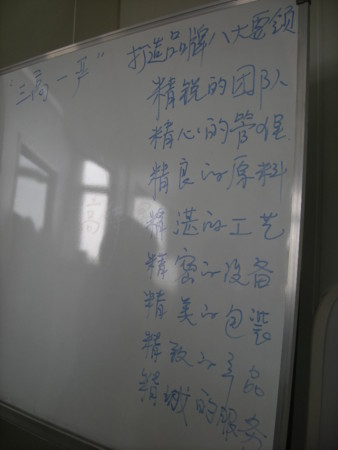 “三高一严” 打造品牌八大要领
精锐的团队
精心的管理
精良的原料
精湛的工艺
精密的设备
精美的包装
精致的产品
精诚的服务